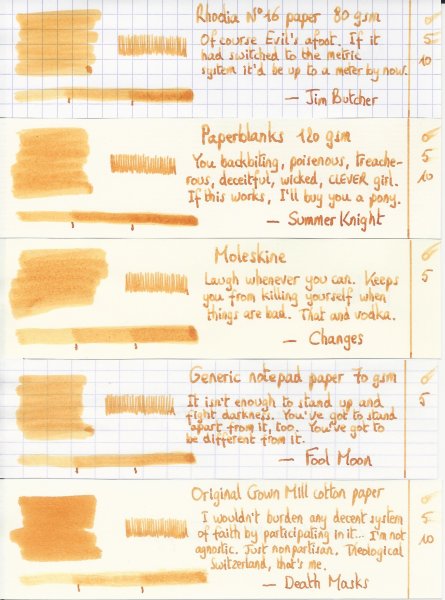 Rhodia N°16 paper 80 gsm
Of course Evil's afoot. If it
had switched to the metric
system it'd be up to a meter by now.
— Jim Butcher
0
5
10
Paperblanks 120 gsm
You backbiting, poisenous, treache-
rous, deceitful, wicked, CLEVER girl.
If this works, I'll buy you a pony.
— Summer Knight
0
5
10
Moleskine
Laugh whenever you can. Keeps
you from killing yourself when
things are bad. That and vodka.
— Changes
0
5
Generic notepad paper 70 gsm
It isn't enough to stand up and
fight darkness. You've got to stand
apart from it, too. You've got to
be different from it.
— Fool Moon
0
5
Original Crown Mill cotton paper
I wouldn't burden any decent system
of faith by participating in it... I'm not
agnostic. Just nonpartisan. Theological
Switzerland, that's me.
— Death Masks
0
5
10